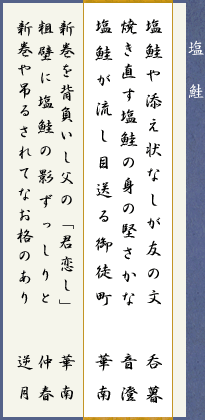 塩鮭
塩鮭や添え状なしが友の文 呑暮
焼き直す塩鮭の身の堅さかな 音澄
塩鮭が流し目送る御徒町 華南
新巻を背負いし父の「君恋し」 華南
粗壁に塩鮭の影ずっしりと 仲春
新巻や吊るされてなお格のあり 逆月